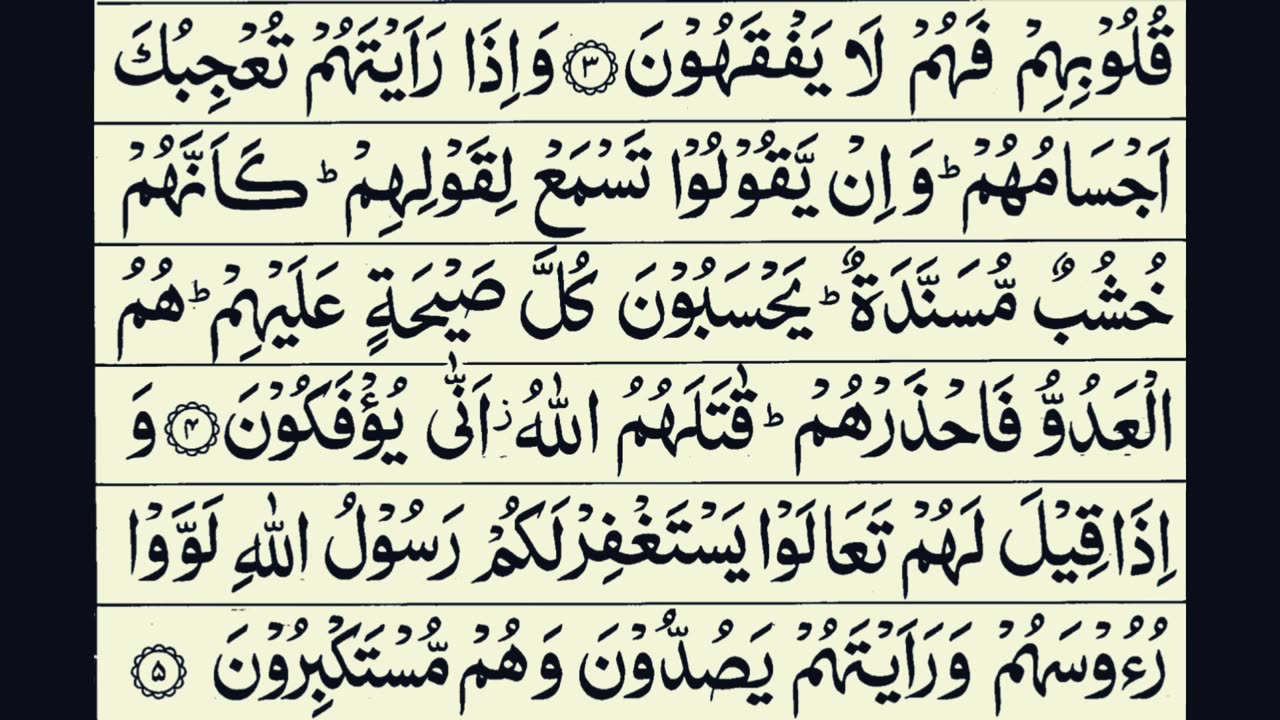 قُلُوۡبِهِمۡ فَهُمۡ لَا يَفۡقَهُوۡنَ ﴿۳﴾ وَاِذَا رَاَيۡتَهُمۡ تُعۡجِبُكَ
اَجۡسَامُهُمۡ ؕ وَ اِنۡ يَّقُوۡلُوۡا تَسۡمَعۡ لِقَوۡلِهِمۡ ؕ كَاَنَّهُمۡ
خُشُبٌ مُّسَنَّدَةٌ ؕ يَحۡسَبُوۡنَ كُلَّ صَيۡحَةٍ عَلَيۡهِمۡ ؕ هُمُ
الۡعَدُوُّ فَاحۡذَرۡهُمۡ ؕ قٰتَلَهُمُ اللّٰهُ ز اَنّٰى يُؤۡفَكُوۡنَ ﴿۴﴾ وَ
اِذَا قِيۡلَ لَهُمۡ تَعَالَوۡا يَسۡتَغۡفِرۡ لَكُمۡ رَسُوۡلُ اللّٰهِ لَوَّوۡا
رُءُوۡسَهُمۡ وَرَاَيۡتَهُمۡ يَصُدُّوۡنَ وَهُمۡ مُّسۡتَكۡبِرُوۡنَ ﴿۵﴾